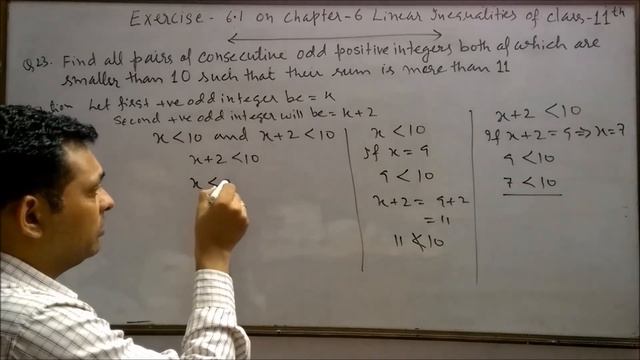 Exercise - 6.1 on Chapter-6 Linear Inequalities of class-11th
Q23. Find all pairs of consecutive odd positive integers both of which are
smaller than 10 such that their sum is more than 11
Let first +ve odd integer be = x
Second +ve odd integer will be = x+2
x<10 and x+2<10
x+2<10
x<
x<10
If x=9
9<10
x+2 = 9+2
= 11
11≮10
x+2 <10
If x+2=9 ⇒ x=7
9 <10
7 <10